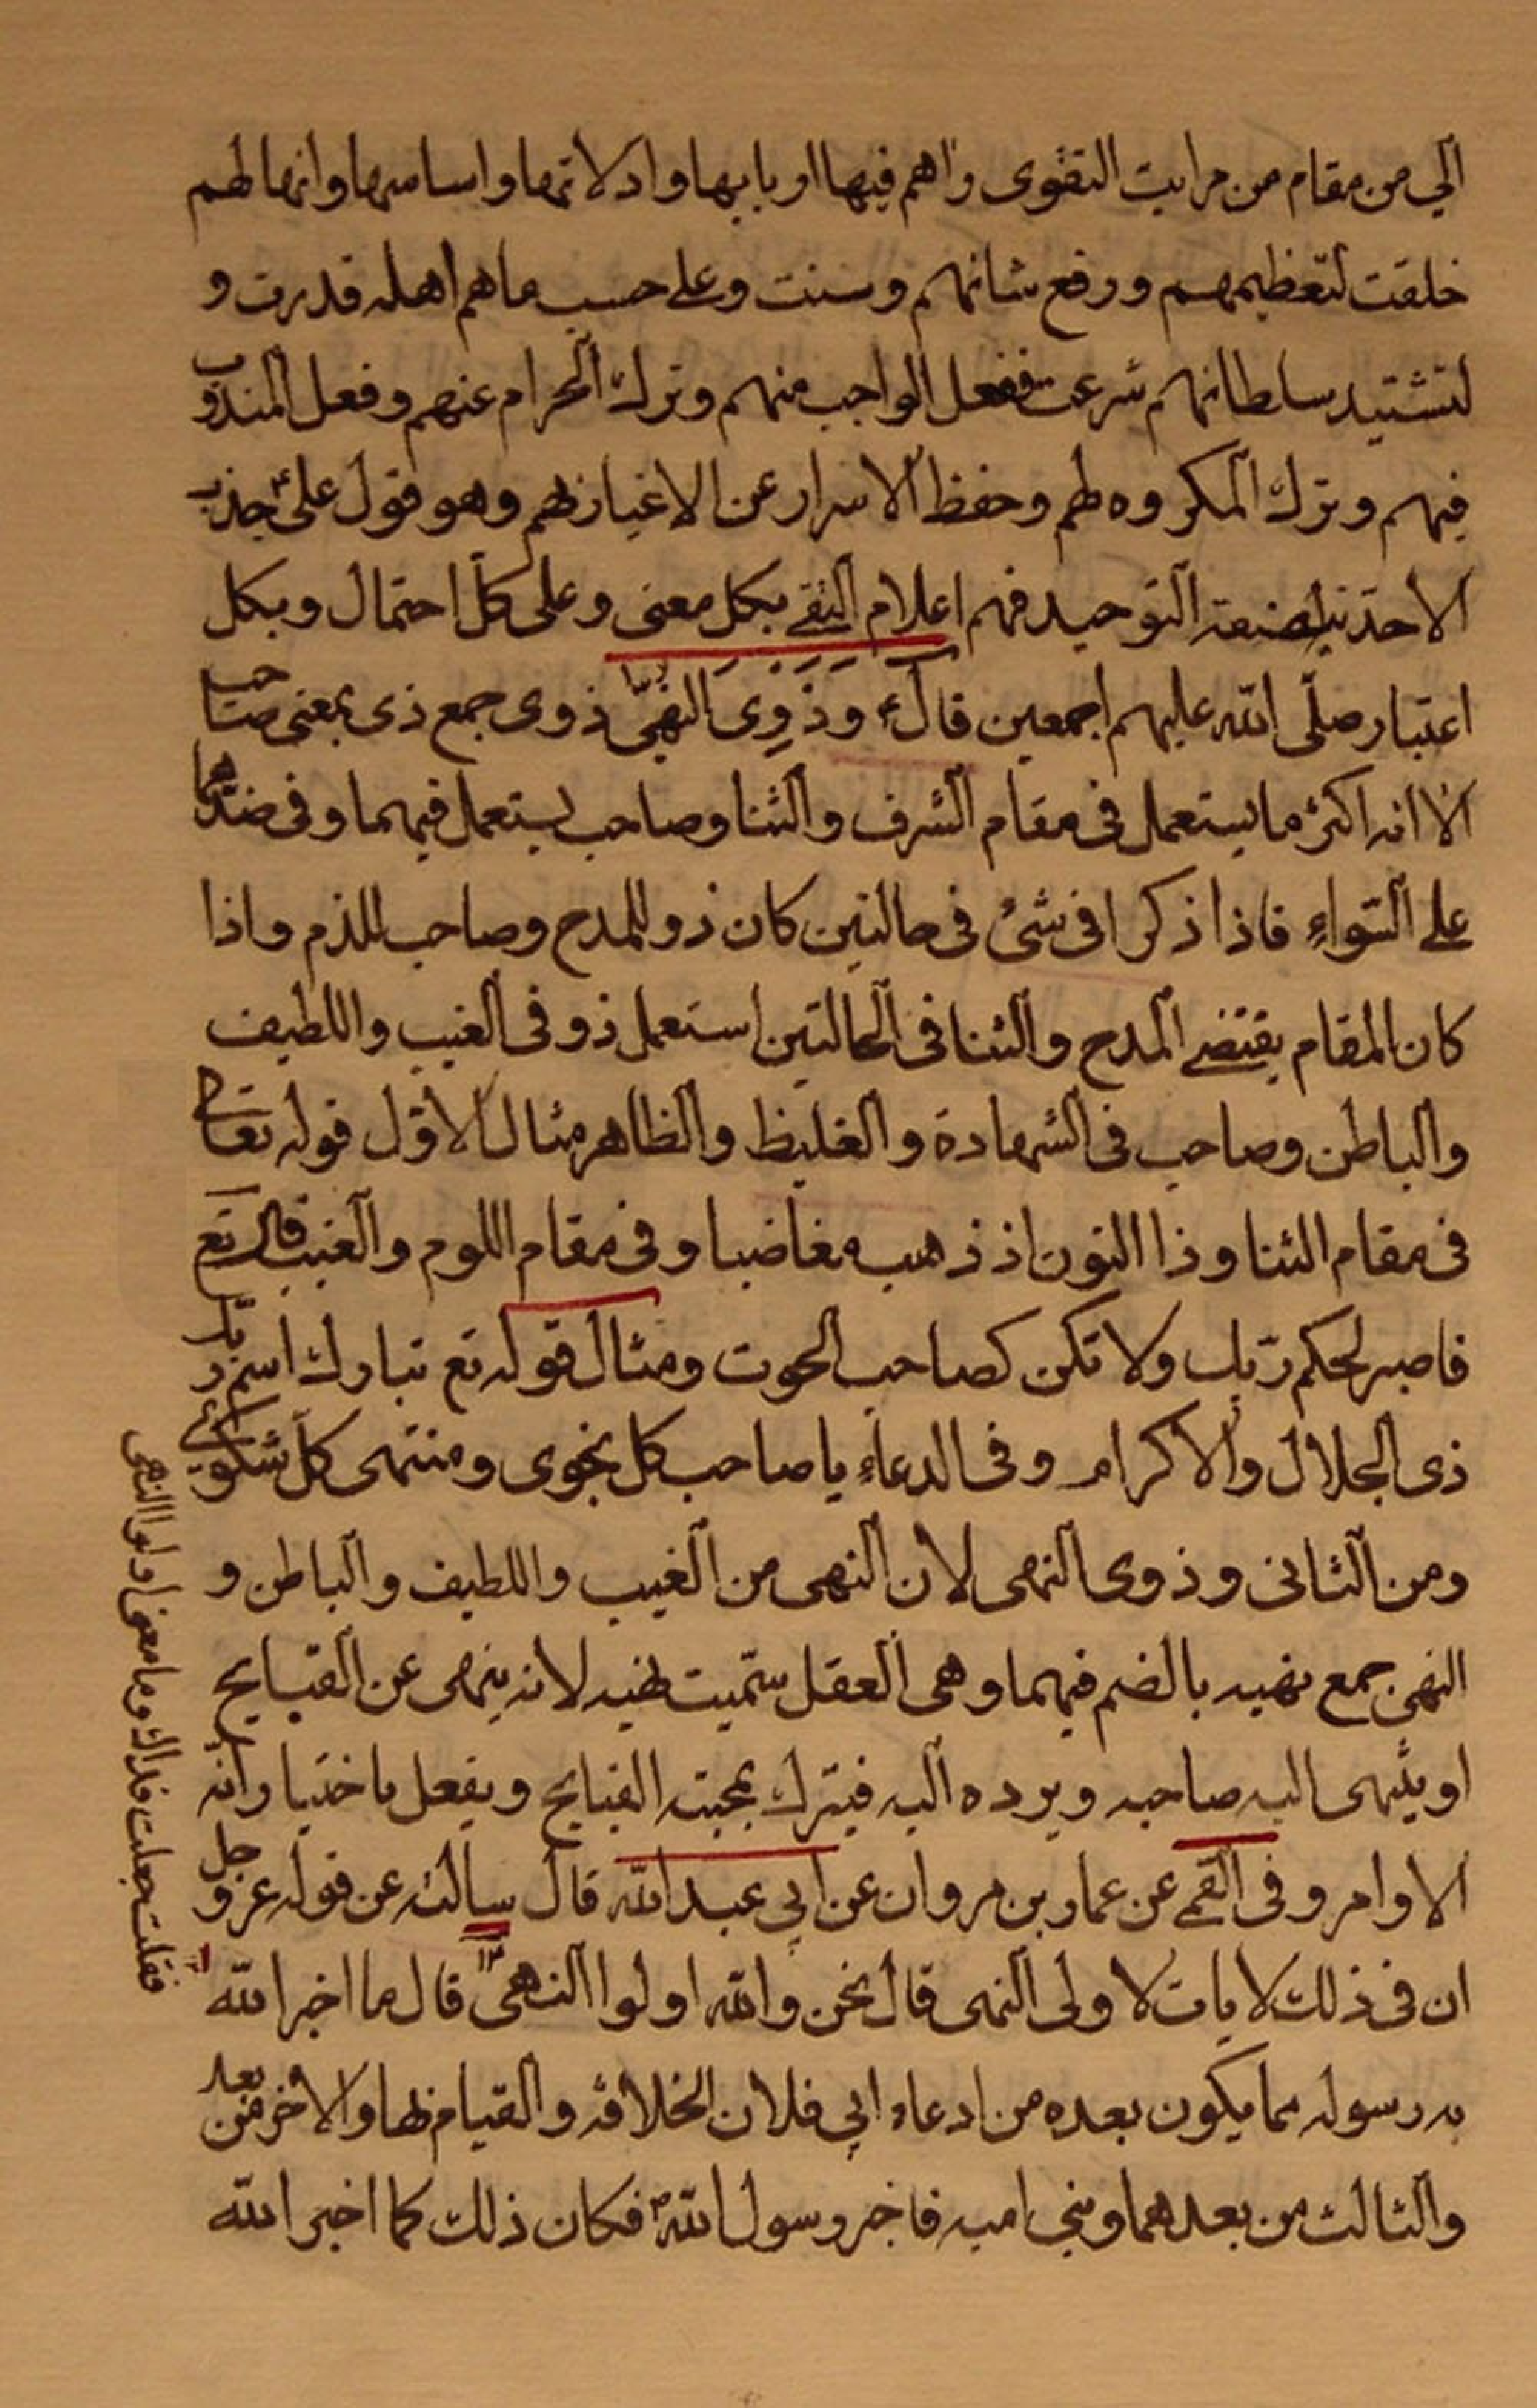 الي من مقام من مراتب التقوى واهم فيها اربابها وادلاتها واساسها وانها لهم
خلقت لتعظيمهم ورفع شانهم وسنت وعلى حسب ما هم اهله قدرت و
لتشييد سلطانهم شرعت ففعل الواجب منهم وترك الحرام عنهم وفعل المندوب
فيهم وترك المكروه لهم وحفظ الاسرار عن الاغيار بهم وهو قول علي ع جذب
الاحدية لصفة التوحيد فهم اعلام التقى بكل معنى وعلى كل احتمال وبكل
اعتبار صلى الله عليهم اجمعين قال ع وذوى النهى ذوى جمع ذى بمعنى صاحب
الا انه اكثر ما يستعمل فى مقام الشرف والثنا وصاحب يستعمل فيهما وفى ضدهما
على السواء فاذا ذكرا فى شئ فى حالتين كان ذو للمدح وصاحب للذم واذا
كان المقام يقتضى المدح والثنا فى الحالتين استعمل ذو فى الغيب واللطيف
والباطن وصاحب فى الشهادة والغليظ والظاهر مثال الاول قوله تعالى
فى مقام الثنا وذا النون اذ ذهب مغاضبا وفى مقام اللوم والعتب قال تع
فاصبر لحكم ربك ولا تكن كصاحب الحوت ومثال قوله تع تبارك اسم ربك
ذى الجلال والاكرام وفى الدعاء يا صاحب كل نجوى ومنتهى كل شكوى
ومن الثانى وذوى النهى لان النهى من الغيب واللطيف والباطن و
النهى جمع نهيه بالضم فيهما وهى العقل سميت نهيه لانه ينهى عن القبايح
او ينتهى اليه صاحبه ويرده اليه فيترك بمحبته القبايح ويفعل باختياراته
الاوامر وفى القمى عن عمار بن مروان عن ابي عبد الله قال سالته عن قوله عز و جل
ان فى ذلك لايات لاولى النهى قال نحن والله اولوا النهى قال ما اخبر الله
به رسوله مما يكون بعده من ادعاء ابي فلان الخلافة والقيام بها والاخر من بعد
والثالث من بعدهما وبني اميه فاخبر رسول الله ص فكان ذلك كما اخبر الله
فقلت جعلت فداك وما معنى اولوا النهى